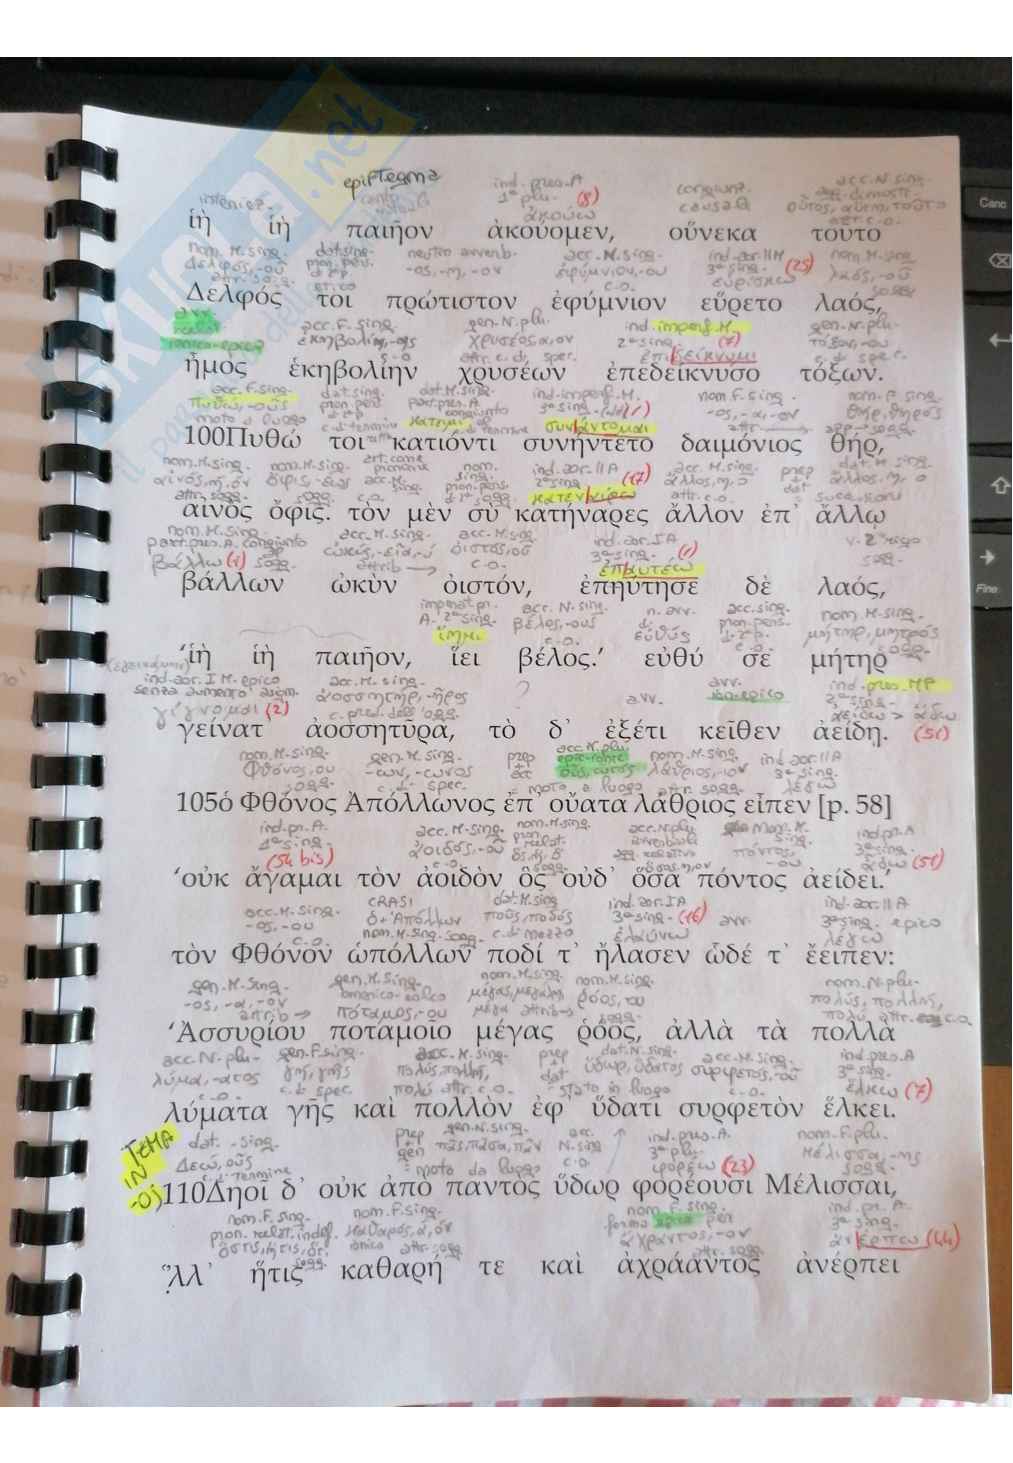 epiftegma
ind. pres. A
interiez.
1ª plu. (8)
ἀκούω
congiunz. causale
οὗτος, αὕτη, τοῦτο
ἱὴ ἱὴ παιῆον ἀκούομεν, οὕνεκα τοῦτο
nom. M. sing. dat. sing. neutro avverb. acc. N. sing. ind. aor. II M nom. M. sing.
Δελφός, -οῦ pron. pers. -ος, -η, -ον ἐφύμνιον, -ου 3ª sing. (25) λαός, -οῦ
εὑρίσκω
Δελφός τοι πρώτιστον ἐφύμνιον εὕρετο λαός,
acc. F. sing. gen. N. plu. ind. imperf. M. gen. N. plu.
ionico-epico ἐκηβολίη, -ης χρύσεος, α, ον 2ª sing. τόξον, -ου
ἐπιδείκνυμι
ἦμος ἑκηβολίην χρυσέων ἐπεδείκνυσο τόξων.
acc. F. sing. dat. sing. dat. M. sing. ind. imperf. M. nom. F. sing. nom. F. sing.
Πυθώ, -οῦς pron. pers. part. pres. A. 3ª sing. -ος, -α, -ον θήρ, θηρός
moto a luogo κάτειμι συνάντομαι
100Πυθώ τοι κατιόντι συνήντετο δαιμόνιος θήρ,
nom. M. sing. nom. M. sing. art. come pronome nom. sing. ind. aor. II A acc. M. sing. prep dat. M. sing.
αἰνός, ή, όν ὄφις, -εως 2ª sing. (17) ἄλλος, η, ο dat ἄλλος, η, ο
attr. sogg. sogg. c.o. attr. c.o.
αἰνὸς ὄφις. τὸν μὲν σὺ κατήναρες ἄλλον ἐπ’ ἄλλῳ
nom. M. sing.
part. pres. A. congiunto ὠκύς, -εῖα, -ύ ὀϊστός, οῦ ind. aor. I A
βάλλω (1) sogg. attrib → c.o. 3ª sing. (1) sogg.
ἐπαυτέω
βάλλων ὠκὺν ὀιστόν, ἐπηύτησε δὲ λαός,
acc. N. sing. n. avv. acc. sing. nom. M. sing.
A. 2ª sing. βέλος, -ους εὐθύς pron. pers. μήτηρ, μητρός
ἵημι c.o. c.o. sogg.
‘ἱὴ ἱὴ παιῆον, ἵει βέλος.’ εὐθύ σε μήτηρ
ind. aor. I M epico acc. M. sing. avv. ind. pres. MP
senza aumento ἀοσσητήρ, -ῆρος ? avv. 3ª sing.
γίγνομαι (2) c. pred. dell'ogg. ἀείδω > ᾄδω
γείνατ’ ἀοσσητῆρα, τὸ δ’ ἐξέτι κεῖθεν ἀείδῃ. (51)
nom. M. sing. gen. M. sing. prep acc. N. plu. nom. M. sing. ind. aor. II A
Φθόνος, ου -ων, -ωνος + acc λάθριος, -ον 3ª sing.
sogg. c. di spec. moto a luogo attr. sogg. λέγω
105ὁ Φθόνος Ἀπόλλωνος ἐπ’ οὔατα λάθριος εἶπεν [p. 58]
ind. pr. A. acc. M. sing. nom. M. sing. acc. N. plu. nom. M. sing. ind. pr. A
1ª sing. ἀοιδός, -οῦ pron. relat. avverbiale πόντος, -ου 3ª sing.
(54 bis) c.o. ὅς, ἥ, ὅ ᾄδω (51)
‘οὐκ ἄγαμαι τὸν ἀοιδὸν ὃς οὐδ’ ὅσα πόντος ἀείδει.’
acc. M. sing. CRASI dat. M. sing. ind. aor. I A ind. aor. II A
-ος, -ου ὁ + Ἀπόλλων πούς, ποδός 3ª sing. (16) avv. 3ª sing. epico
c.o. nom. M. sing. sogg. c. di mezzo ἐλαύνω λέγω
τὸν Φθόνον ὡπόλλων ποδί τ’ ἤλασεν ὧδέ τ’ ἔειπεν:
gen. M. sing. gen. M. sing. nom. M. sing. nom. M. sing. nom. N. plu.
-ος, -α, -ον omerico-eolico μέγας, μεγάλη, ῥόος, ου πολύς, πολλή,
attrib → πόταμος, -ου μέγα attrib → sogg. πολύ attr. c.o.
‘Ἀσσυρίου ποταμοῖο μέγας ῥόος, ἀλλὰ τὰ πολλὰ
acc. N. plu. gen. F. sing. acc. M. sing. prep dat. N. sing. acc. M. sing. ind. pres. A
λῦμα, -ατος γῆ, γῆς πολύς, πολλή, + dat ὕδωρ, ὕδατος συρφετός, -οῦ 3ª sing.
c.o. c. di spec. πολύ attr. c.o. stato in luogo c.o. ἕλκω (7)
λύματα γῆς καὶ πολλὸν ἐφ’ ὕδατι συρφετὸν ἕλκει.
TEMA IN -οj
dat. sing. prep gen. N. sing. acc. ind. pres. A. nom. F. plu.
Δεώ, οῦς + gen πᾶς, πᾶσα, πᾶν N. sing 3ª plu. Μέλισσα, -ης
c. di termine moto da luogo c.o. φορέω (23) sogg.
110Δηοῖ δ’ οὐκ ἀπὸ παντὸς ὕδωρ φορέουσι Μέλισσαι,
nom. F. sing. nom. F. sing. nom. F. sing. ind. pr. A.
pron. relat. indef. καθαρός, ά, όν forma epica per 3ª sing.
ὅστις, ἥτις, ὅτι ionico attr. sogg. ἄχραντος, -ον ἀνέρπω (44)
sogg. attr. sogg.
ἀλλ’ ἥτις καθαρή τε καὶ ἀχράαντος ἀνέρπει
Canc
Fine
SKUOLA.net